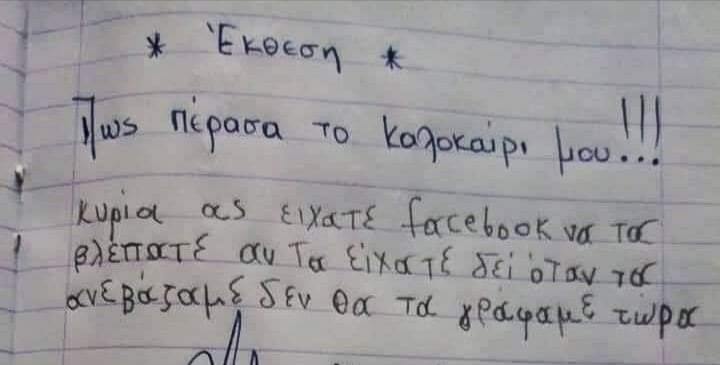 * Έκθεση *
Πως πέρασα το καλοκαίρι μου!!!
κυρία ας ειχατε facebook να τα
βλέπατε αν τα είχατε δεί όταν τα
ανεβάζαμε δεν θα τα γράφαμε τώρα